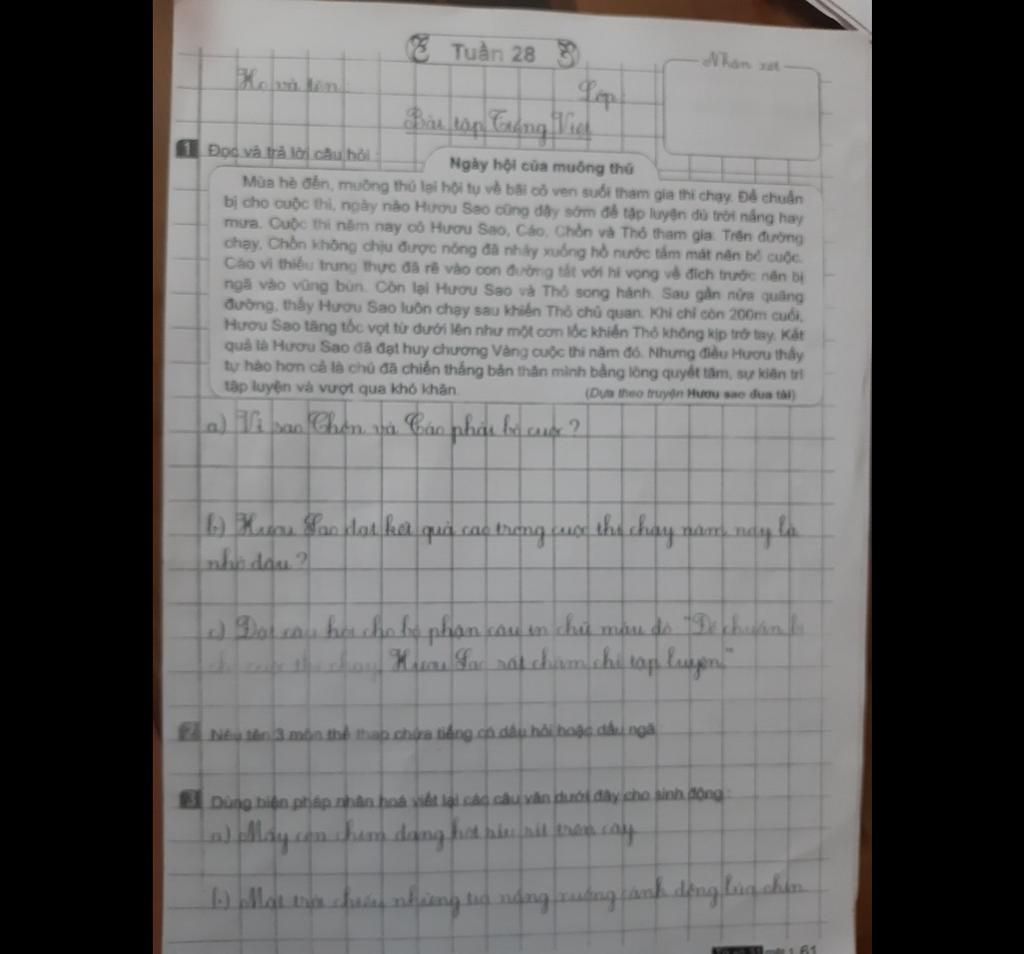 Tuần 28
Nhận xét
Họ và tên Lớp:
Bài tập Tiếng Việt
1 Đọc và trả lời câu hỏi :
Ngày hội của muông thú
Mùa hè đến, muông thú lại hội tụ về bãi cỏ ven suối tham gia thi chạy. Để chuẩn
bị cho cuộc thi, ngày nào Hươu Sao cũng dậy sớm để tập luyện dù trời nắng hay
mưa. Cuộc thi năm nay có Hươu Sao, Cáo, Chồn và Thỏ tham gia. Trên đường
chạy, Chồn không chịu được nóng đã nhảy xuống hồ nước tắm mát nên bỏ cuộc.
Cáo vì thiếu trung thực đã rẽ vào con đường tắt với hi vọng về đích trước nên bị
ngã vào vũng bùn. Còn lại Hươu Sao và Thỏ song hành. Sau gần nửa quãng
đường, thấy Hươu Sao luôn chạy sau khiến Thỏ chủ quan. Khi chỉ còn 200m cuối,
Hươu Sao tăng tốc vọt từ dưới lên như một cơn lốc khiến Thỏ không kịp trở tay. Kết
quả là Hươu Sao đã đạt huy chương Vàng cuộc thi năm đó. Nhưng điều Hươu thấy
tự hào hơn cả là chú đã chiến thắng bản thân mình bằng lòng quyết tâm, sự kiên trì
tập luyện và vượt qua khó khăn.
(Dựa theo truyện Hươu sao đua tài)
a) Vì sao Chồn và Cáo phải bỏ cuộc?
b) Hươu Sao đạt kết quả cao trong cuộc thi chạy năm nay là
nhờ đâu?
c) Đặt câu hỏi cho bộ phận câu in chữ màu đỏ "Để chuẩn bị
cho cuộc thi chạy, Hươu Sao rất chăm chỉ tập luyện."
2 Nêu tên 3 môn thể thao chứa tiếng có dấu hỏi hoặc dấu ngã
3 Dùng biện pháp nhân hoá viết lại các câu văn dưới đây cho sinh động :
a) Mấy con chim đang hót ríu rít trên cây
b) Mặt trời chiếu những tia nắng xuống cánh đồng lúa chín
61